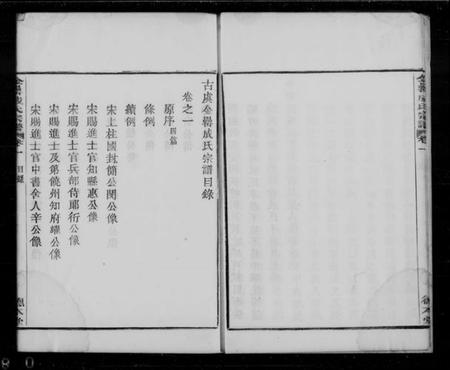 古虞金罍成氏宗譜目錄
卷之一
原序四篇
條例
續例
宋上柱國封簡公閔公像
宋賜進士官知縣惠公像
宋賜進士官兵部侍郎衍公像
宋賜進士及第饒州知府權公像
宋賜進士官中書舍人辛公像
金罍成氏宗譜
卷一
目錄
德本堂
金罍成氏宗譜
卷一
德本堂